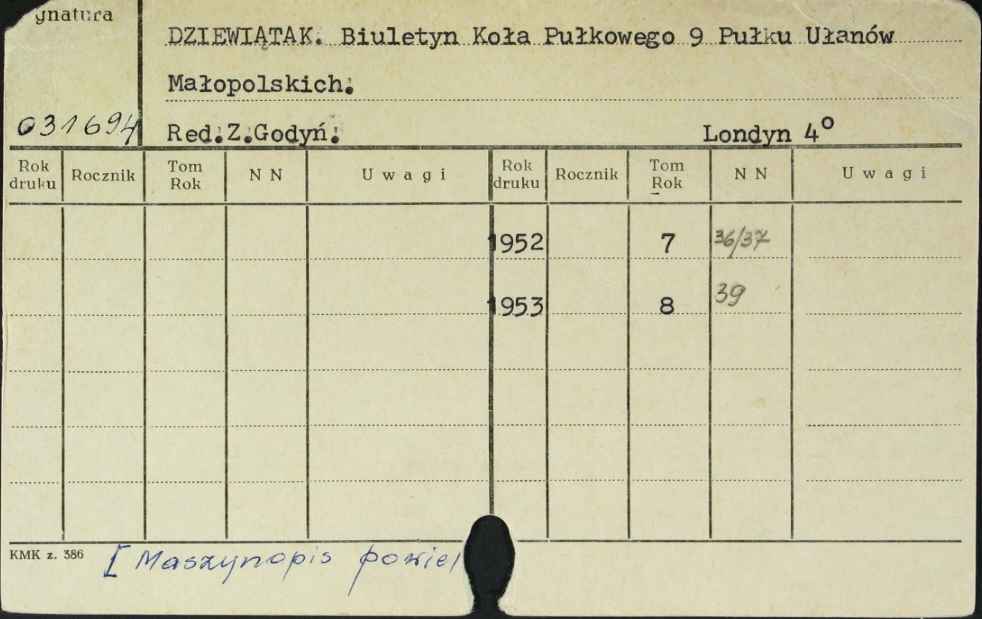 ygnatura
DZIEWIĄTAK. Biuletyn Koła Pułkowego 9 Pułku Ułanów
Małopolskich.
031694 Red. Z. Godyń. Londyn 4°
Rok druku Rocznik Tom Rok NN Uwagi Rok druku Rocznik Tom Rok NN Uwagi
1952 7 36/37
1953 8 39
KMK z. 386 [Maszynopis powiel